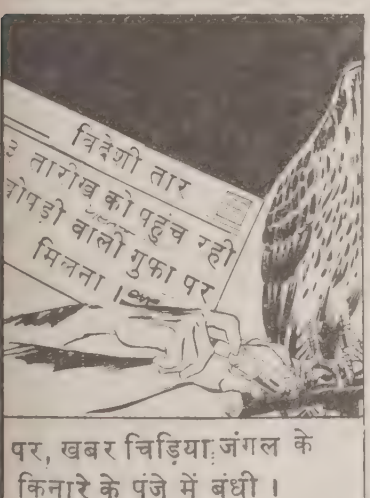 विदेशी तार
३ तारीख को पहुंच रही
खोपड़ी वाली गुफा पर
मिलना ।
पर, खबर चिड़िया जंगल के
किनारे के पंजे में बंधी ।